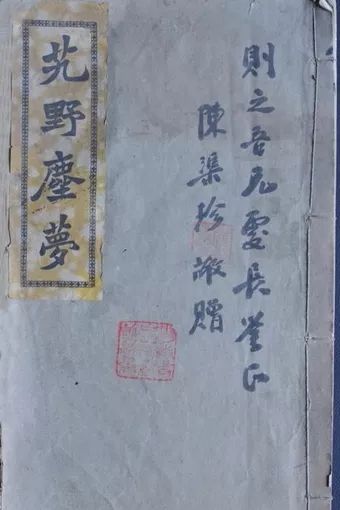 則之吾兄處長鉴正
陳渠珍敬贈
艽野塵夢